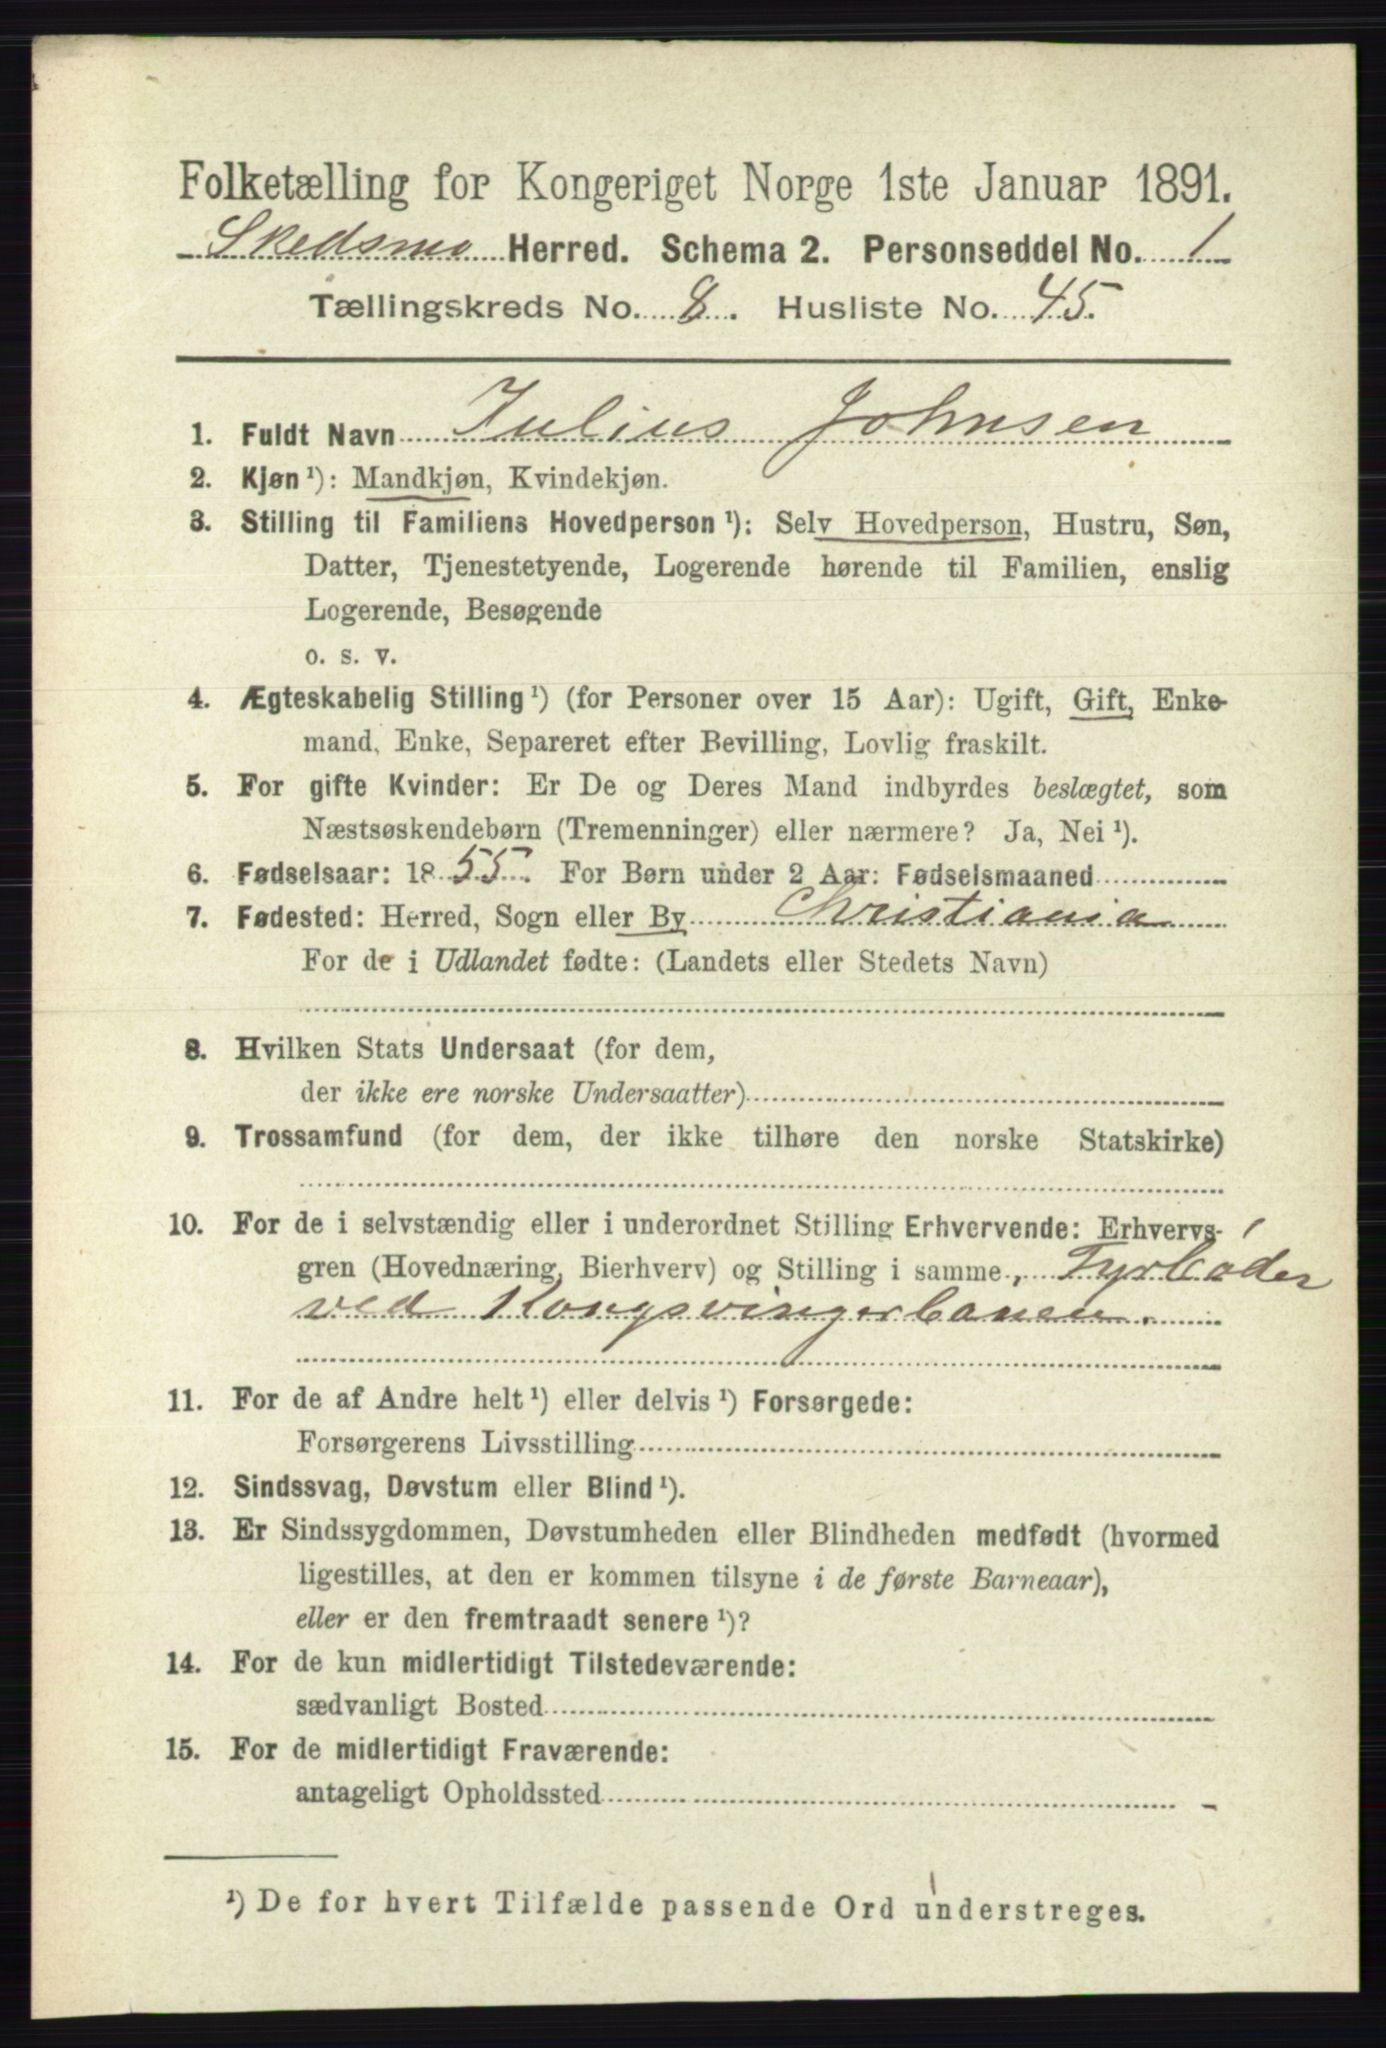 Folketælling for Kongeriget Norge 1ste Januar 1891.
Skedsmo Herred. Schema 2. Personseddel No. 1
Tællingskreds No. 8. Husliste No. 45.
1. Fuldt Navn Julius Johnsen
2. Kjøn ¹): Mandkjøn, Kvindekjøn.
3. Stilling til Familiens Hovedperson ¹): Selv Hovedperson, Hustru, Søn,
Datter, Tjenestetyende, Logerende hørende til Familien, enslig
Logerende, Besøgende
o. s. v.
4. Ægteskabelig Stilling ¹) (for Personer over 15 Aar): Ugift, Gift, Enke-
mand, Enke, Separeret efter Bevilling, Lovlig fraskilt.
5. For gifte Kvinder: Er De og Deres Mand indbyrdes beslægtet, som
Næstsøskendebørn (Tremenninger) eller nærmere? Ja, Nei ¹).
6. Fødselsaar: 1855. For Børn under 2 Aar: Fødselsmaaned
7. Fødested: Herred, Sogn eller By Christiania
For de i Udlandet fødte: (Landets eller Stedets Navn)
8. Hvilken Stats Undersaat (for dem,
der ikke ere norske Undersaatter)
9. Trossamfund (for dem, der ikke tilhøre den norske Statskirke)
10. For de i selvstændig eller i underordnet Stilling Erhvervende: Erhvervs-
gren (Hovednæring, Bierhverv) og Stilling i samme, Fyrbøder
ved Kongsvingerbanen.
11. For de af Andre helt ¹) eller delvis ¹) Forsørgede:
Forsørgerens Livsstilling
12. Sindssvag, Døvstum eller Blind ¹).
13. Er Sindssygdommen, Døvstumheden eller Blindheden medfødt (hvormed
ligestilles, at den er kommen tilsyne i de første Barneaar),
eller er den fremtraadt senere ¹)?
14. For de kun midlertidigt Tilstedeværende:
sædvanligt Bosted
15. For de midlertidigt Fraværende:
antageligt Opholdssted
¹) De for hvert Tilfælde passende Ord understreges.